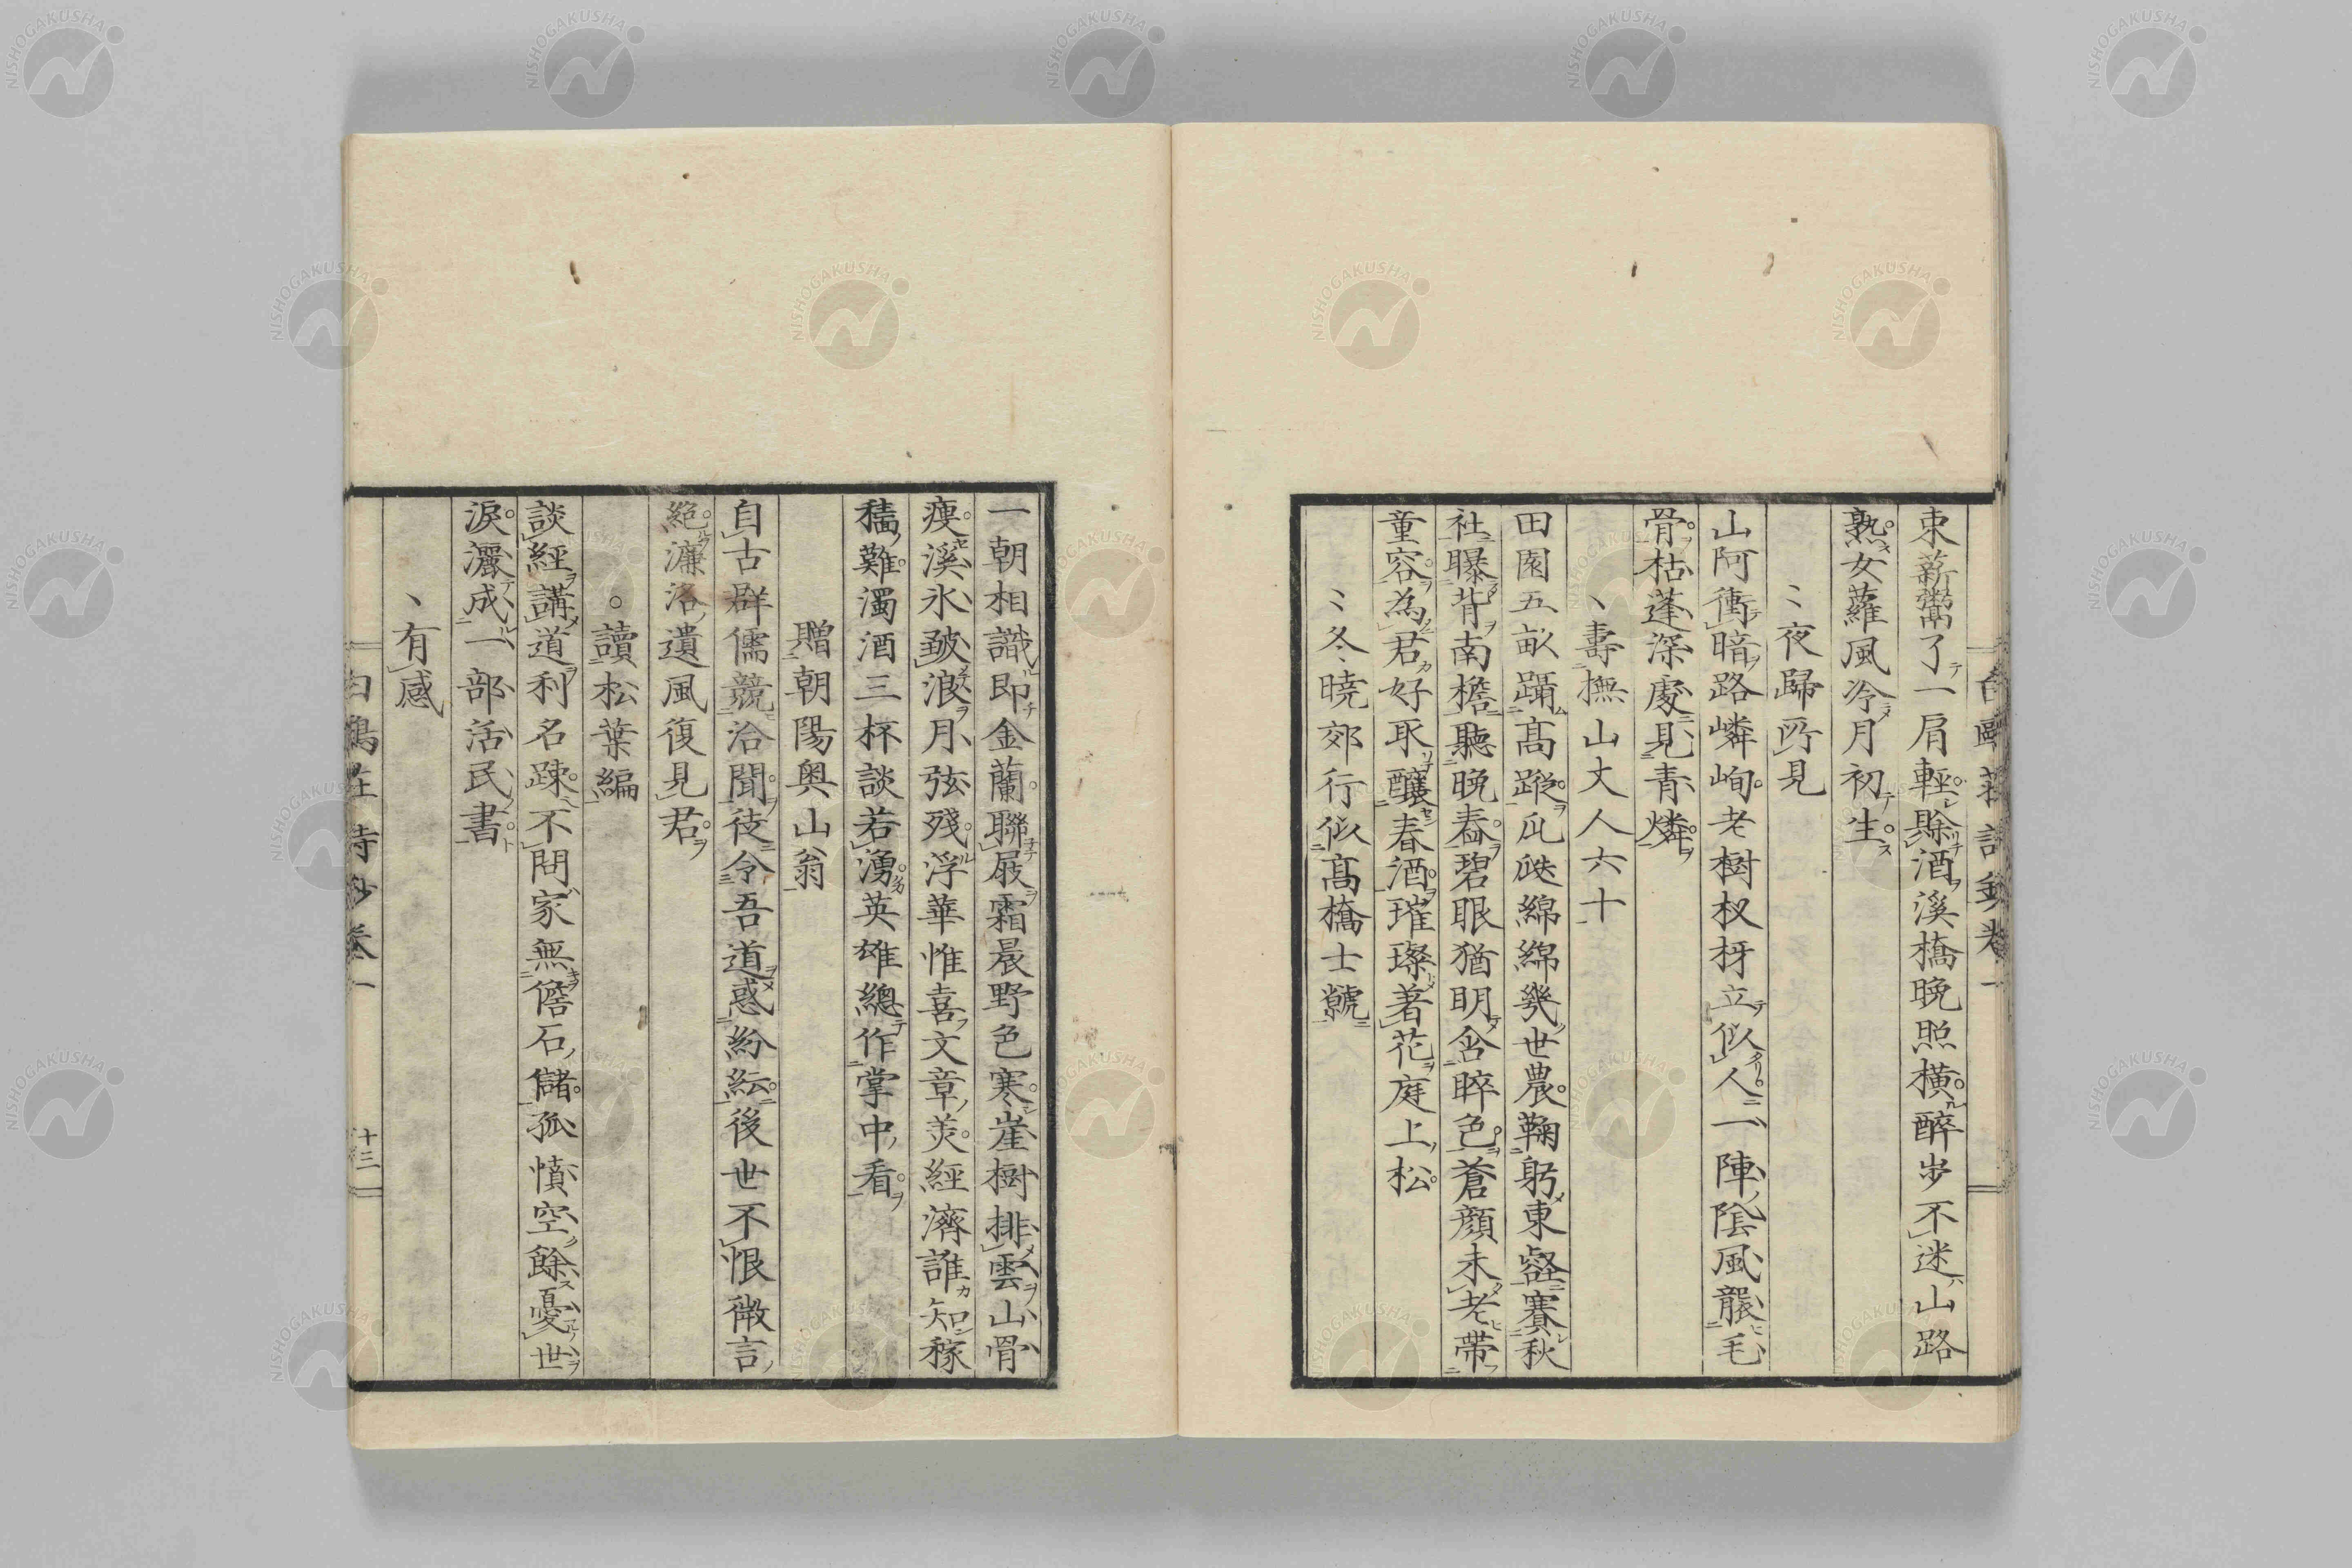 束薪鬻了一肩輕賖酒溪橋晩照橫醉步不迷山路
熟女蘿風冷月初生
夜歸所見
山阿衝暗路嶙峋老樹杈枒立似人一陣陰風襲毛
骨枯蓬深處見青燐
壽撫山丈人六十
田園五畝躡高蹤瓜瓞綿綿幾世農鞠躬東盩賽秋
社曝背南檐聽晩舂碧眼猶明含睟色蒼顔未老帶
童容為君好取釀春酒璀璨著花庭上松
冬曉郊行似髙橋士號
一朝相識即金蘭聯屐霜晨野色寒崖樹排雲山骨
瘦溪氷皴浪月弦殘浮華惟喜文章美經濟誰知稼
穡難濁酒三杯談若湧英雄總作掌中看
贈朝陽奥山翁
自古群儒競洽聞徒令吾道惑紛紜後世不恨微言
絶濂洛遺風復見君
讀松葉編
談經講道利名疎不問家無儋石儲孤憤空餘憂世
淚灑成一部活民書
有感
白鷗莊詩鈔卷一
十三
NISHOGAKUSHA